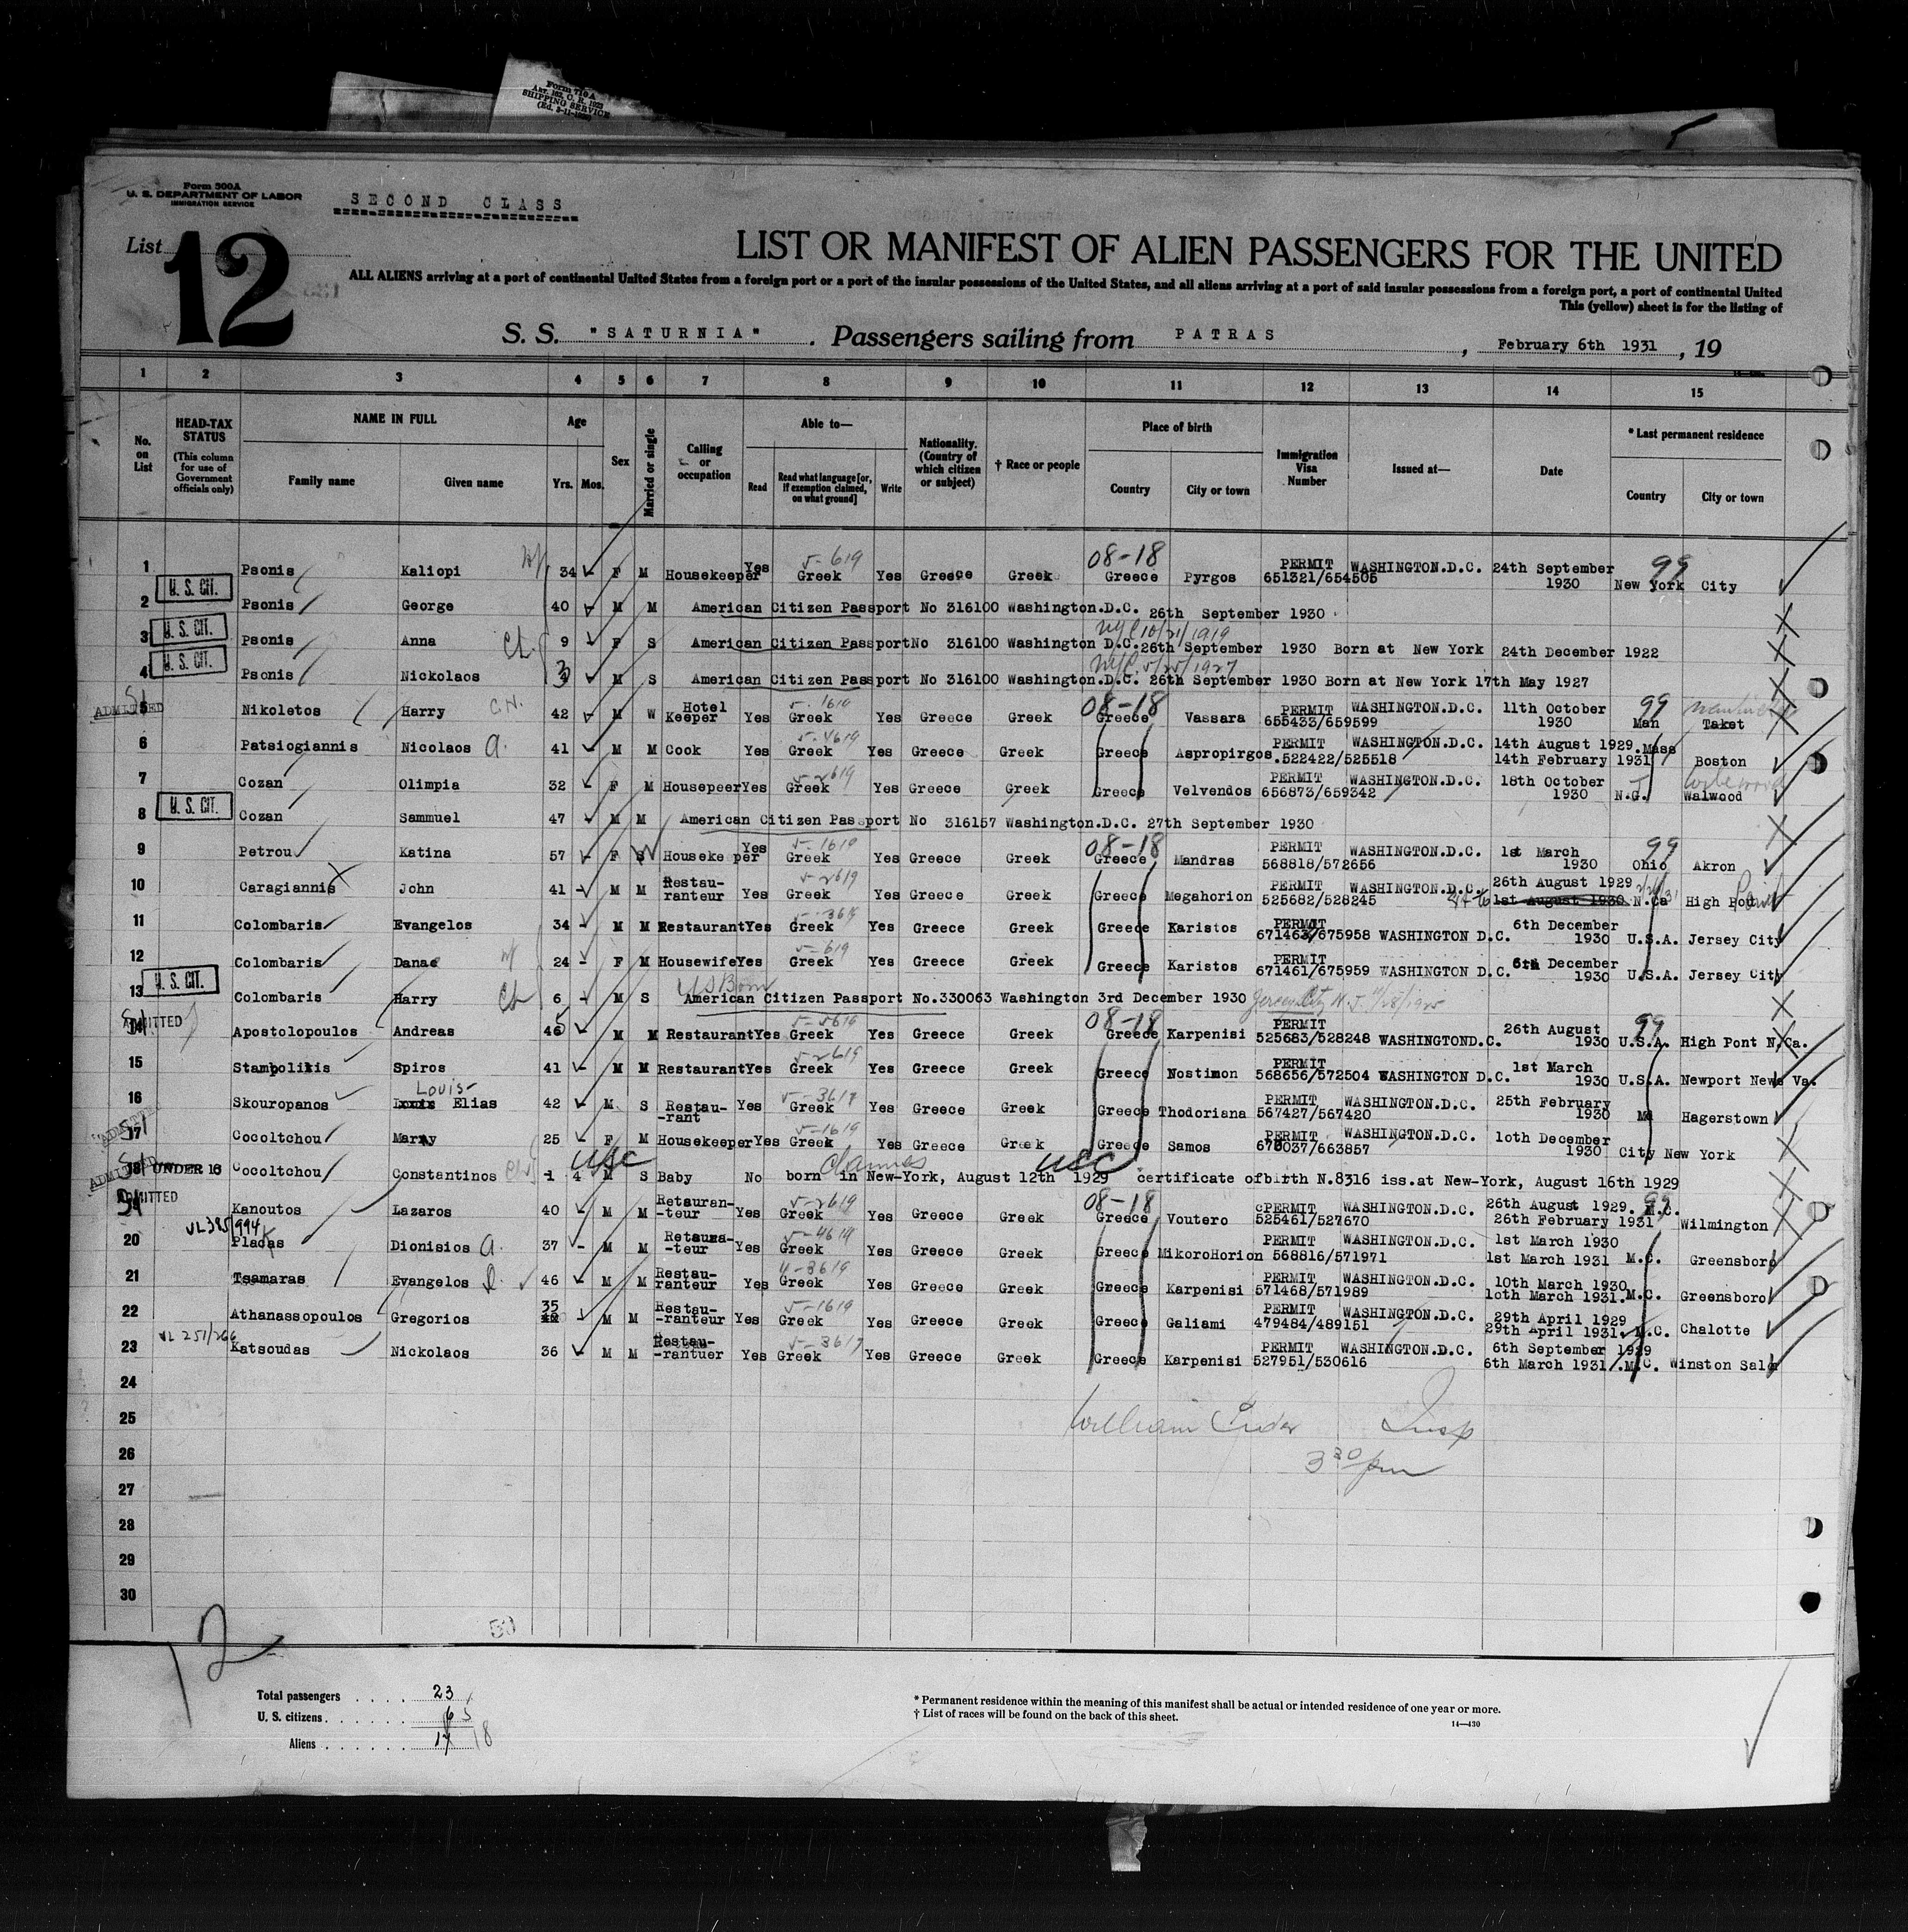 Form 710 A
ART. 162, C. R. 1923
SHIPPING SERVICE
Form 500A
U. S. DEPARTMENT OF LABOR
IMMIGRATION SERVICE
SECOND CLASS
List 12
LIST OR MANIFEST OF ALIEN PASSENGERS FOR THE UNITED
ALL ALIENS arriving at a port of continental United States from a foreign port or a port of the insular possessions of the United States, and all aliens arriving at a port of said insular possessions from a foreign port, a port of continental United
This (yellow) sheet is for the listing of
S. S. "SATURNIA" . Passengers sailing from PATRAS , February 6th 1931 , 19
1 2 3 4 5 6 7 8 9 10 11 12 13 14 15
No. on List
HEAD-TAX STATUS (This column for use of Government officials only)
NAME IN FULL
Family name Given name
Age
Yrs. Mos.
Sex
Married or single
Calling or occupation
Able to—
Read Read what language [or, if exemption claimed, on what ground] Write
Nationality. (Country of which citizen or subject)
† Race or people
Place of birth
Country City or town
Immigration Visa Number
Issued at—
Date
* Last permanent residence
Country City or town
1 Psonis Kaliopi 34 F M Housekeeper Yes 5-619 Greek Yes Greece Greek 08-18 Greece Pyrgos PERMIT 651321/654505 WASHINGTON.D.C. 24th September 1930 99 New York City
U. S. CIT.
2 Psonis George 40 M M American Citizen Passport No 316100 Washington.D.C. 26th September 1930
U. S. CIT.
3 Psonis Anna Ch. 9 F S American Citizen PassportNo 316100 Washington D.C. 26th September 1930 Born at New York 24th December 1922
U. S. CIT.
4 Psonis Nickolaos 3 M S American Citizen Passport No 316100 Washington.D.C. 26th September 1930 Born at New York 17th May 1927
ADMITTED
5 Nikoletos Harry 42 M W Hotel Keeper Yes 5-1619 Greek Yes Greece Greek 08-18 Greece Vassara PERMIT 655433/659599 WASHINGTON.D.C. 11th October 1930 99 Man Taket
6 Patsiogiannis Nicolaos a. 41 M M Cook Yes 5-4619 Greek Yes Greece Greek Greece Aspropirgos PERMIT .522422/525518 WASHINGTON.D.C. 14th August 1929. 14th February 1931 Mass Boston
7 Cozan Olimpia 32 F M Housepeer Yes 5-2619 Greek Yes Greece Greek Greece Velvendos PERMIT 656873/659342 WASHINGTON.D.C. 18th October 1930 N.G. Walwood
U. S. CIT.
8 Cozan Sammuel 47 M M American Citizen Passport No 316157 Washington.D.C. 27th September 1930
9 Petrou Katina 57 F W Househe per Yes 5-1619 Greek Yes Greece Greek 08-18 Greece Mandras PERMIT 568818/572656 WASHINGTON.D.C. 1st March 1930 99 Ohio Akron
10 Caragiannis John 41 M M Restau-ranteur Yes 5-2619 Greek Yes Greece Greek Greece Megahorion PERMIT 525682/528245 WASHINGTON.D.C. 26th August 1929 1st August 1930 N.Ca High Pont
11 Colombaris Evangelos 34 M M Restaurant Yes 5-3619 Greek Yes Greece Greek Greece Karistos PERMIT 671463/675958 WASHINGTON D.C. 6th December 1930 U.S.A. Jersey City
12 Colombaris Danae wf 24 F M Housewife Yes 5-619 Greek Yes Greece Greek Greece Karistos PERMIT 671461/675959 WASHINGTON D.C. 6th December 1930 U.S.A. Jersey City
U. S. CIT.
13 Colombaris Harry Ch 6 M S US Born American Citizen Passport No.330063 Washington 3rd December 1930 Jersey City N.J. 11/28/1925
ADMITTED
14 Apostolopoulos Andreas 46 M M Restaurant Yes 5-5619 Greek Yes Greece Greek 08-18 Greece Karpenisi PERMIT 525683/528248 WASHINGTOND.C. 26th August 1930 99 U.S.A. High Pont N.Ca.
15 Stampolitis Spiros 41 M M Restaurant Yes 5-2619 Greek Yes Greece Greek Greece Nostimon PERMIT 568656/572504 WASHINGTON D.C. 1st March 1930 U.S.A. Newport News Va.
16 Skouropanos Louis Elias 42 M S Restau--rant Yes 5-3617 Greek Yes Greece Greek Greece Thodoriana PERMIT 567427/567420 WASHINGTON.D.C. 25th February 1930 Md Hagerstown
ADMITTED
17 Cocoltchou Marry 25 F M Housekeeper Yes 5-1619 Greek Yes Greece Greek Greece Samos PERMIT 676037/663857 WASHINGTON.D.C. 10th December 1930 City New York
ADMITTED
18 UNDER 16 Cocoltchou Constantinos 1 4 M S USC Baby No born in New-York, August 12th 1929 USC certificate ofbirth N.8316 iss.at New-York, August 16th 1929
ADMITTED
19 Kanoutos Lazaros 40 M M Retauran--teur Yes 5-2619 Greek Yes Greece Greek 08-18 Greece Voutero PERMIT 525461/527670 WASHINGTON.D.C. 26th August 1929. 26th February 1931 99 M.C. Wilmington
VL 385/994
20 Pladas Dionisios a. 37 M M Retaura--teur Yes 5-4619 Greek Yes Greece Greek Greece MikoroHorion PERMIT 568816/571971 WASHINGTON.D.C. 1st March 1930 1st March 1931 M.C. Greensboro
21 Tsamaras Evangelos 46 M M Restau-ranteur Yes 4-3619 Greek Yes Greece Greek Greece Karpenisi PERMIT 571468/571989 WASHINGTON.D.C. 10th March 1930 10th March 1931. M.C. Greensboro
22 Athanassopoulos Gregorios 35 M M Restau--ranteur Yes 5-1619 Greek Yes Greece Greek Greece Galiami PERMIT 479484/489151 WASHINGTON.D.C. 29th April 1929 29th April 1931. M.C. Chalotte
VL 251/266
23 Katsoudas Nickolaos 36 M M Restau--rantuer Yes 5-3617 Greek Yes Greece Greek Greece Karpenisi PERMIT 527951/530616 WASHINGTON.D.C. 6th September 1929 6th March 1931 .M.C. Winston Salm
24
25 William Insp
26 3 30 pm
27
28
29
30
12
Total passengers . . . . 23
U. S. citizens . . . . . . 6 5
Aliens . . . . . . 17 18
* Permanent residence within the meaning of this manifest shall be actual or intended residence of one year or more.
† List of races will be found on the back of this sheet.
14—430